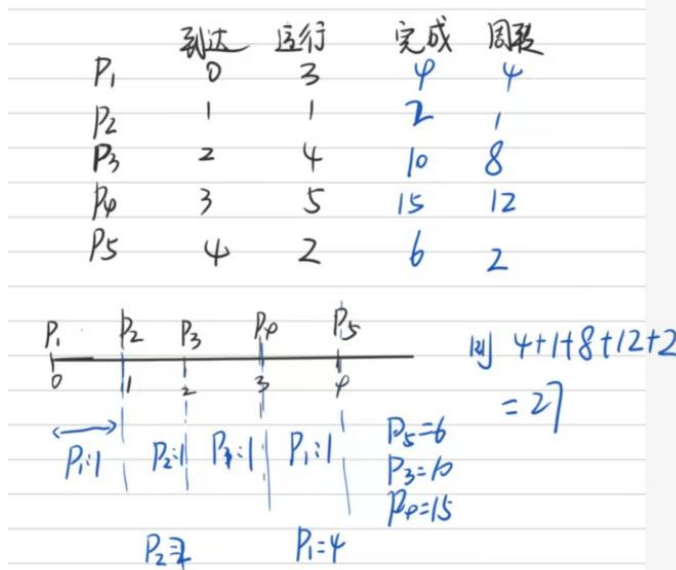 到达 运行 完成 周转
P1 0 3 4 4
P2 1 1 2 1
P3 2 4 10 8
P4 3 5 15 12
P5 4 2 6 2
P1 P2 P3 P4 P5
0 1 2 3 4
则 4+1+8+12+2
=27
P1:1 P2:1 P1:1 P1:1
P5=6
P3=10
P4=15
P2=2 P1=4